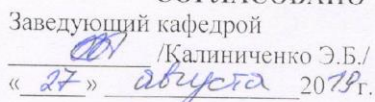 СОГЛАСОВАНО
Заведующий кафедрой
/Калиниченко Э.Б./
«27» августа 2019г.